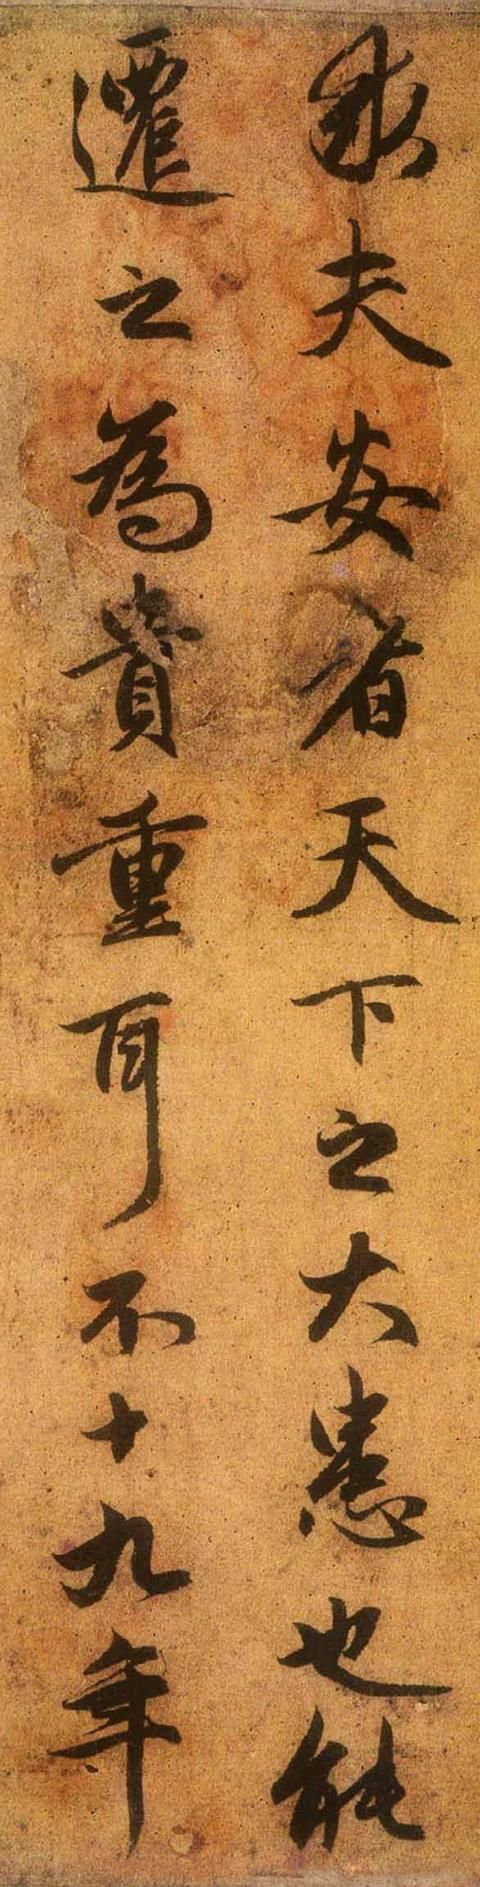 夫安者天下之大患也能
遷之為貴重耳不十九年